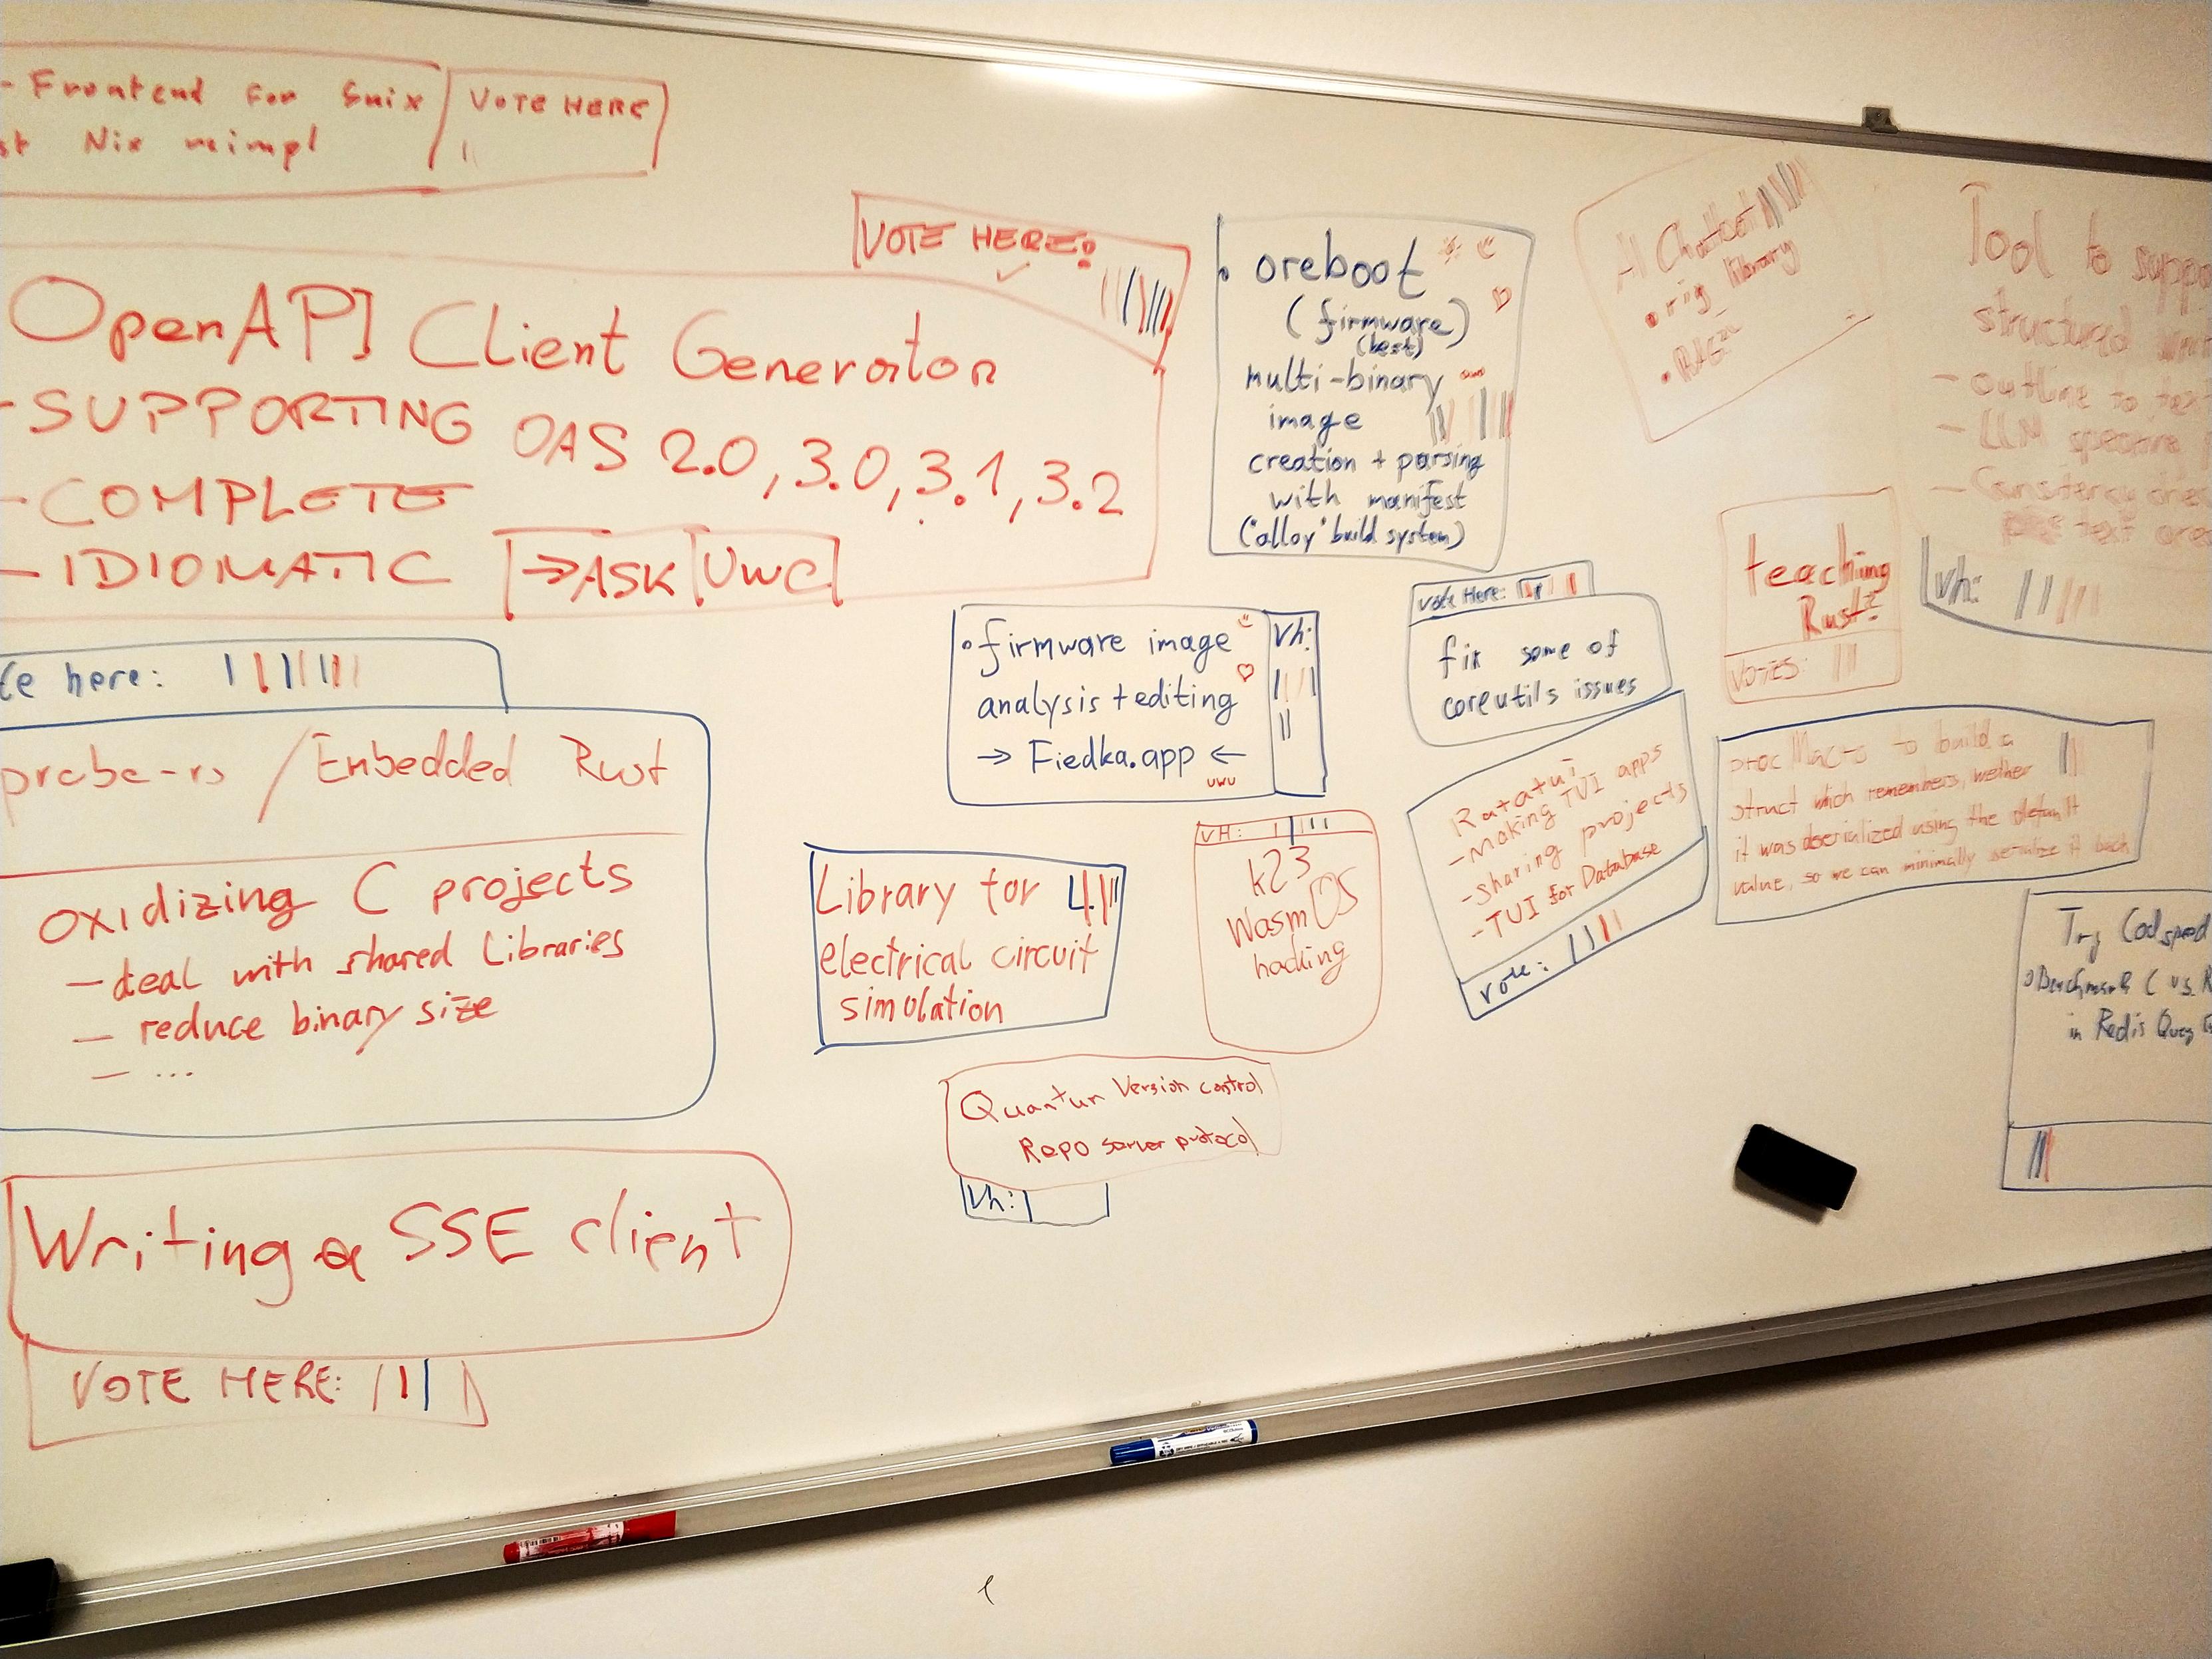 - Frontend for Snix
st Nix reimpl
VOTE HERE
VOTE HERE!
OpenAPI Client Generator
- SUPPORTING OAS 2.0, 3.0, 3.1, 3.2
- COMPLETE
- IDIOMATIC
→ ASK UWC
te here:
probe-rs / Embedded Rust
oxidizing C projects
- deal with shared Libraries
- reduce binary size
- ...
Writing a SSE client
VOTE HERE:
• oreboot
(firmware)
(best)
multi-binary
image
creation + parsing
with manifest
("alloy" build system)
• firmware image
analysis + editing
→ Fiedka.app ←
uwu
vh:
Library for
electrical circuit
simulation
VH:
k23
Wasm OS
hacking
Quantum Version control
Repo server protocol
Vh:
AI Chatbot
• rig library
• RAG
Vote Here:
fix some of
coreutils issues
Ratatui
- Making TUI apps
- sharing projects
- TUI for Database
vote:
teaching
Rust?
VOTES:
Tool to suppo
structured
- outline to text
- LLM
-
text
vh:
proc Macro to build a
struct which remembers, wether
it was deserialized using the default
value, so we can minimally serialize it back
Try Codspeed
• Benchmark C vs. R
in Redis Query